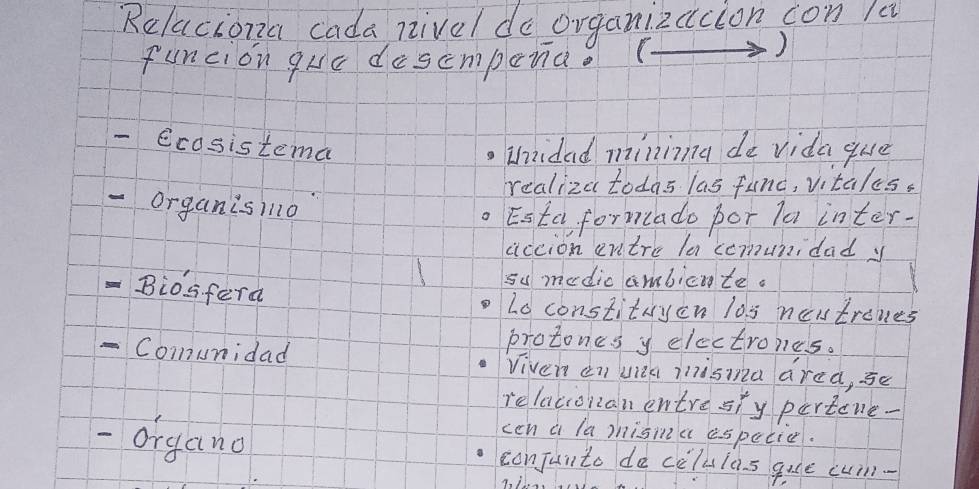 Relaciona cada nivel de organización con la
función que desempeña. (→)
- Ecosistema
- Organismo
- Biósfera
- Comunidad
- Órgano
• Unidad mínima de vida que
realiza todas las func. vitales.
• Esta formado por la inter-
acción entre la comunidad y
su medio ambiente.
• Lo constituyen los neutrones
protones y electrones.
• Viven en una misma área, se
relacionan entre sí y pertene-
cen a la misma especie.
• conjunto de células que cum-